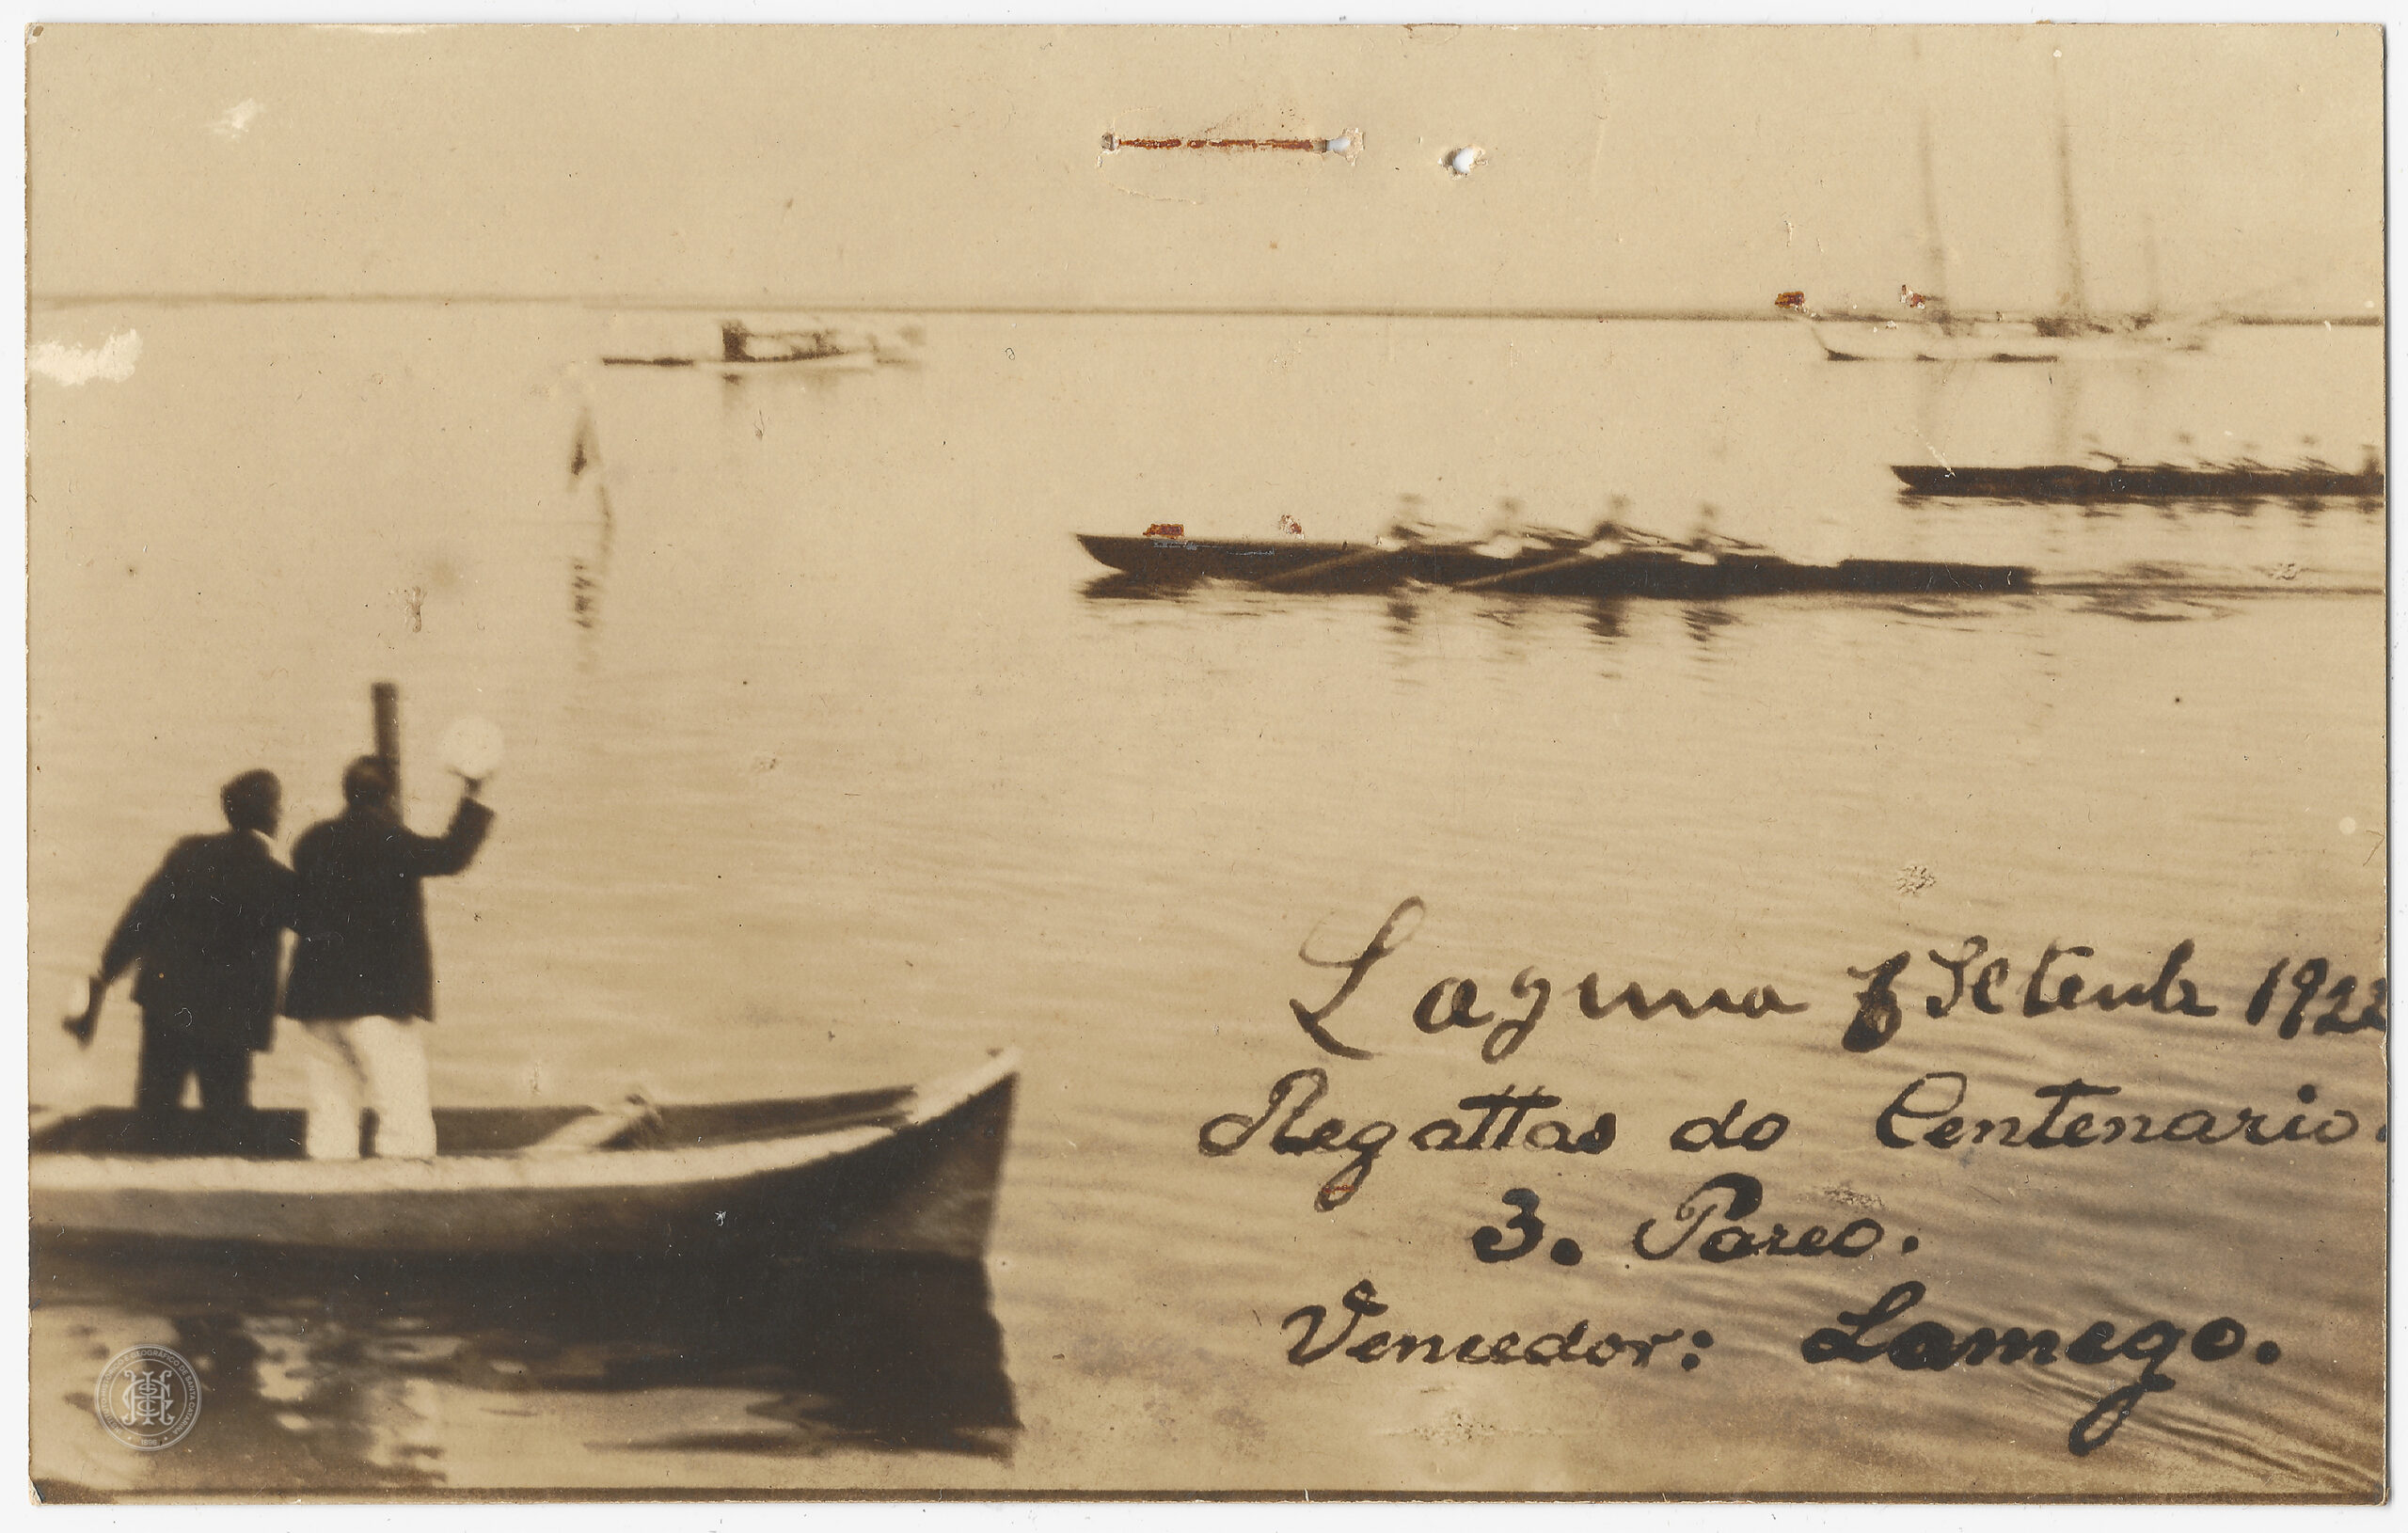 Laguna 7 Setembr 1922
Regattas do Centenario.
3. Pareo.
Vencedor: Lamego.
INSTITUTO HISTÓRICO E GEOGRÁFICO DE SANTA CATARINA